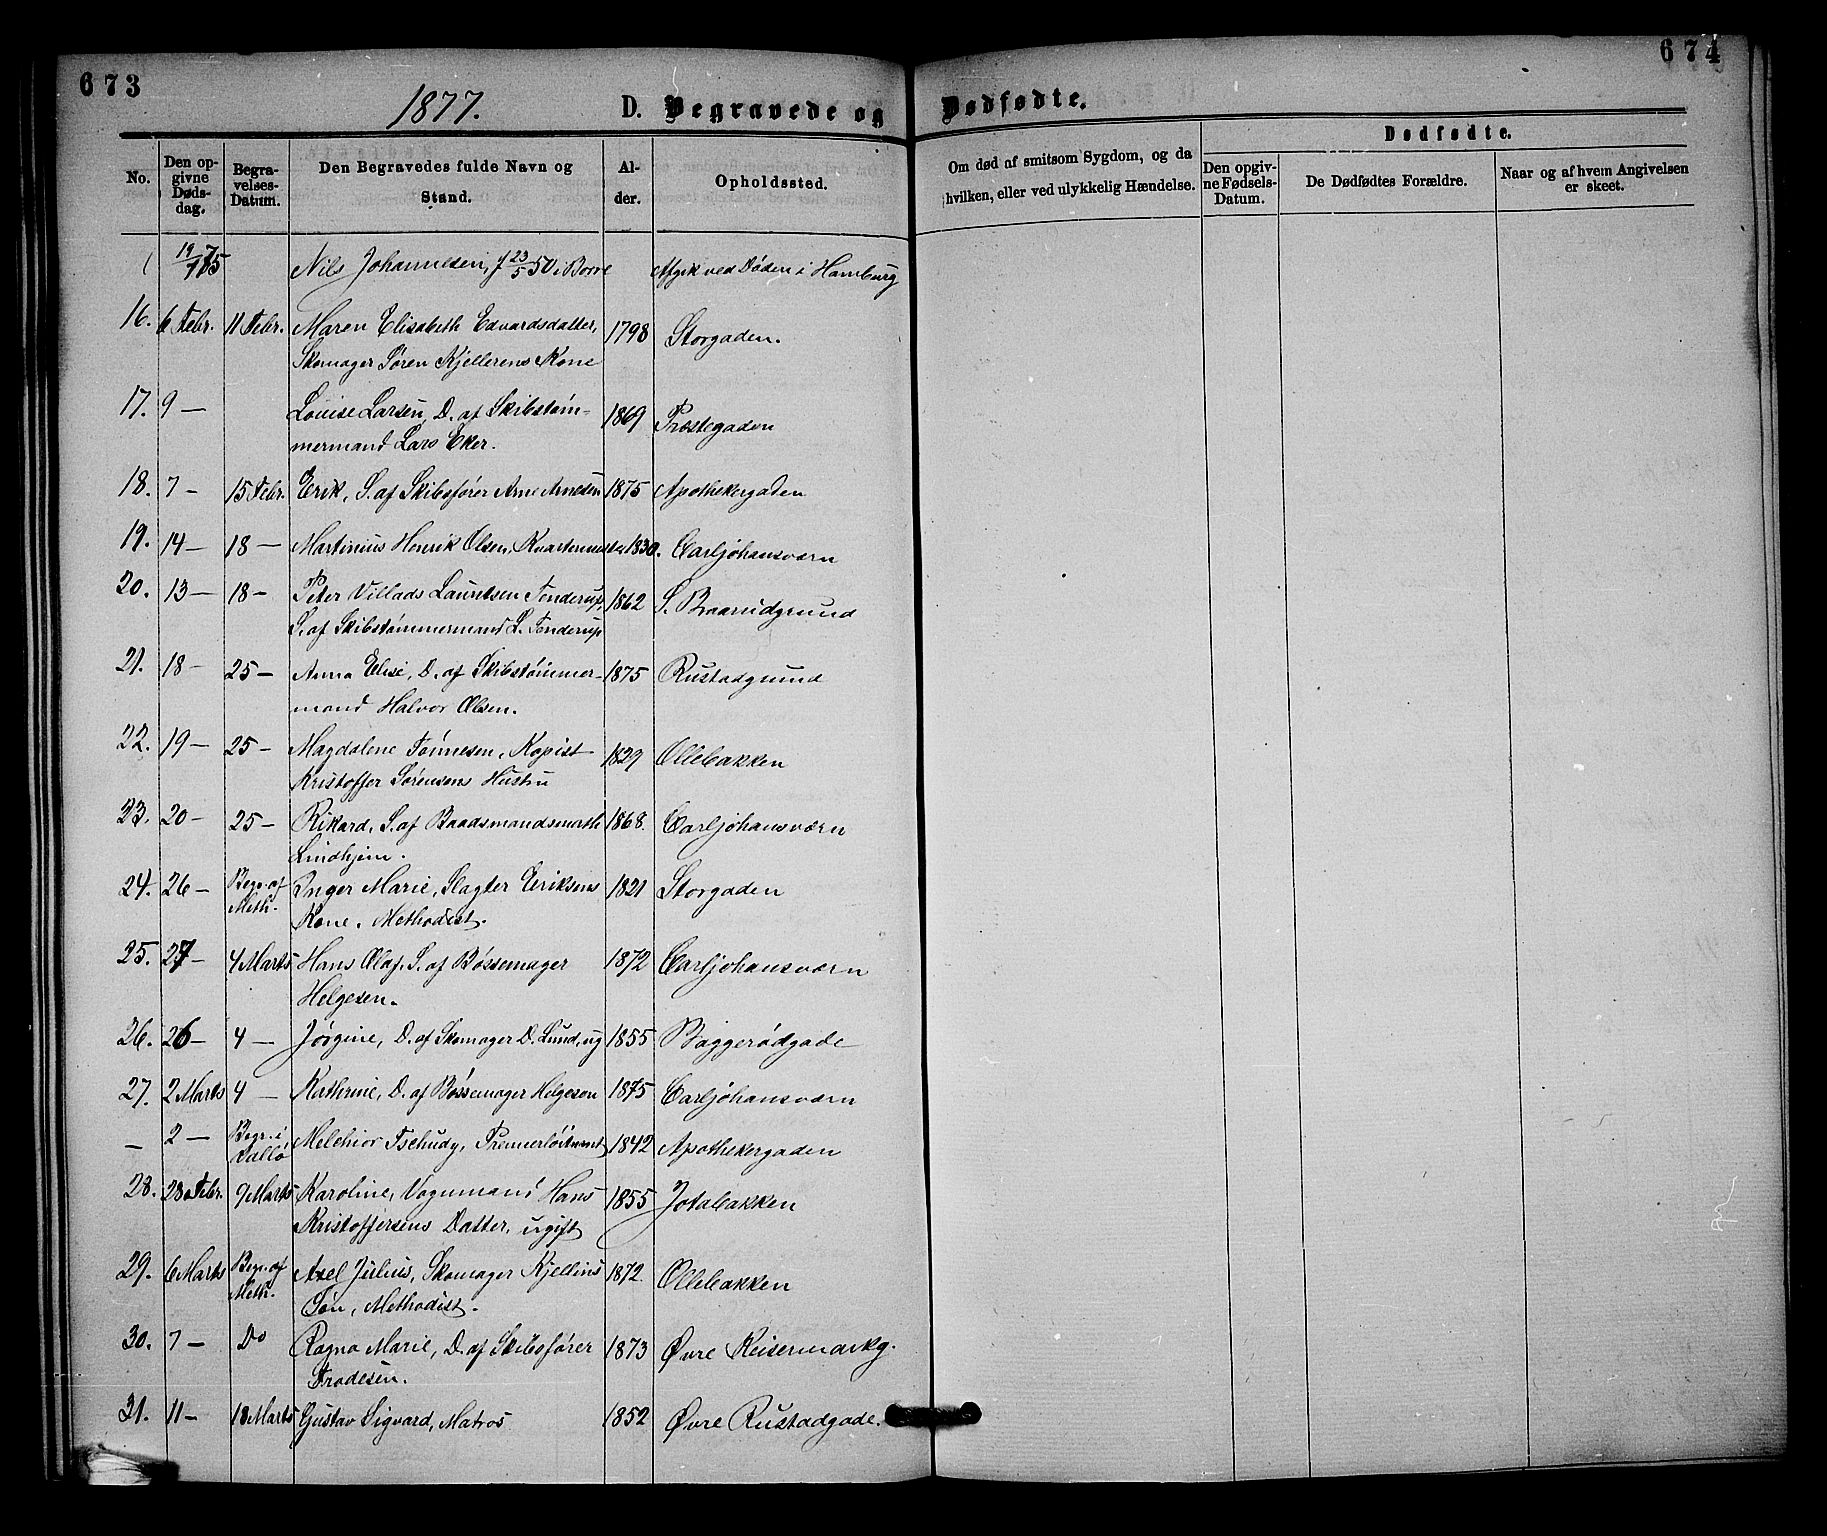 673
674
1877.
D. Begravede og Dødfødte.
No.
Den opgivne Dødsdag.
Begravelses-Datum.
Den Begravedes fulde Navn og Stand.
Alder.
Opholdssted.
Om død af smitsom Sygdom, og da hvilken, eller ved ulykkelig Hændelse.
Dødfødte.
Den opgivne Fødsels-Datum.
De Dødfødtes Forældre.
Naar og af hvem Angivelsen er skeet.
Nils Johannesen, f 23/5 50 i Borre Afgik ved Døden i Hamburg
16. 6 Febr. 11 Febr. Maren Elisabeth Edvardsdatter, 1798 Storgaden.
Skomager Søren Kjellerens Kone
17. 9 — Louise Larsen, D. af Skibstøm- 1869 Præstegaden
mermand Lars Eker.
18. 7 — 15 Febr. Erik, S. af Skibsfører Arne Arnesen 1875 Apothekergaden
19. 14 — 18 — Martinius Henrik Olsen, Kvartermester 1830. Carljohansværn
20. 13 — 18 — Peter Villads Lauritsen Tonderup, 1862 S. Braarudgrund
S. af Skibstømmermand L. Tonderup
21. 18 — 25 — Anna Elise, D. af Skibstømmer- 1875 Rustadgrund
mand Halvor Olsen.
22. 19 — 25 — Magdalene Tønnesen, Kopist 1829 Ollebakken
Kristoffer Sørensens Hustru
23. 20 — 25 — Rikard, S. af Baadsmandsmath 1868. Carljohansværn
Lindhjem.
24. 26 — Begr. af Meth. Inger Marie, Slagter Eriksens 1821 Storgaden
Kone, Methodist.
25. 27 — 4 Marts Hans Olaf, S. af Bøssemager 1872 Carljohansværn
Helgesen.
26. 26 — 4 — Jørgine, D. af Skomager D. Lund, ug 1855 Baggerødgade
27. 2 Marts 4 — Kathrine, D. af Bøssemager Helgesen 1875 Carljohansværn
— 2 — Begr. i Vallø Melchior Tschudy, Premierløitenant 1842 Apothekergaden
28. 28 Febr. 9 Marts Karoline, Vognmand Hans 1855 Jotabakken
Kristoffersens Datter, ugift
29. 6 Marts Begr. af Meth. Axel Julius, Skomager Kjellins 1872. Ollebakken
Søn, Methodist.
30. 7 — Do Ragna Marie, D. af Skibsfører 1873 Øvre Keisermarkg.
Frodesen.
31. 11 — 18 Marts Gustav Sigvard, Matros 1852 Øvre Rustadgade.